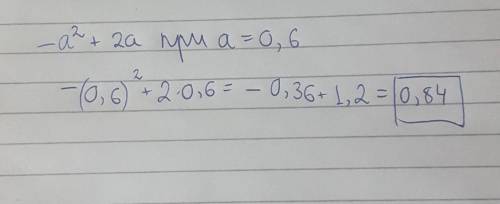 -a² + 2a при a = 0,6
-(0,6)² + 2·0,6 = - 0,36 + 1,2 = 0,84